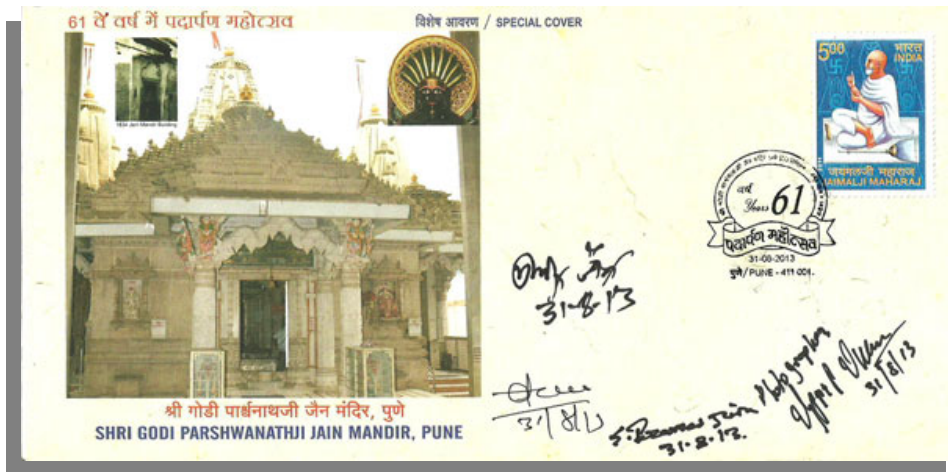 61 वें वर्ष में पदार्पण महोत्सव
विशेष आवरण / SPECIAL COVER
1634 Jain Mandir Building
5.00
भारत
INDIA
जयमलजी महाराज
JAIMALJI MAHARAJ
वर्ष
Years 61
पदार्पण महोत्सव
31-08-2013
पुणे/PUNE - 411 001.
31-8-13
31/8/13
31/8/13
S. Jain Photographer
31-8-13.
श्री गोडी पार्श्वनाथजी जैन मंदिर, पुणे
SHRI GODI PARSHWANATHJI JAIN MANDIR, PUNE